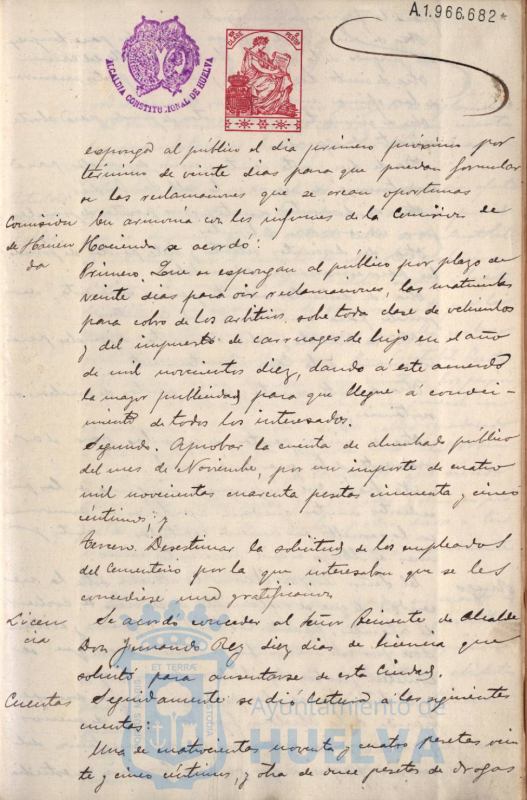 A.1.966.682*
ALCALDIA CONSTITUCIONAL DE HUELVA
espongan al público el dia primero próximo por
término de veinte dias para que puedan formular
se las reclamaciones que se crean oportunas
Comision
de Hacien
da
En armonia con los informes de la Comision de
Hacienda se acordó:
Primero. Que se espongan al público por plazo de
veinte dias para oir reclamaciones, las matriculas
para cobro de los arbitrios sobre toda clase de vehiculos
y del impuesto de carruages de lujo en el año
de mil novecientos diez, dando á este acuerdo
la mayor publicidad para que llegue á conoci-
miento de todos los interesados.
Segundo. Aprobar la cuenta de alumbrado público
del mes de Noviembre, por un importe de cuatro
mil novecientas cuarenta pesetas cincuenta y cinco
céntimos; y
Tercero. Desestimar la solicitud de los empleados
del Cementerio por la que interesaban que se les
concediese una gratificacion
Licen
cia
Se acordó conceder al Señor Teniente de Alcalde
Don Fernando Rey diez dias de licencia que
solicitó para ausentarse de esta Ciudad.
Cuentas
Seguidamente se dió lectura á las siguientes
cuentas:
Una de cuatrocientas noventa y cuatro pesetas vein
te y cinco céntimos, y otra de once pesetas de drogas
Ayuntamiento de
HUELVA